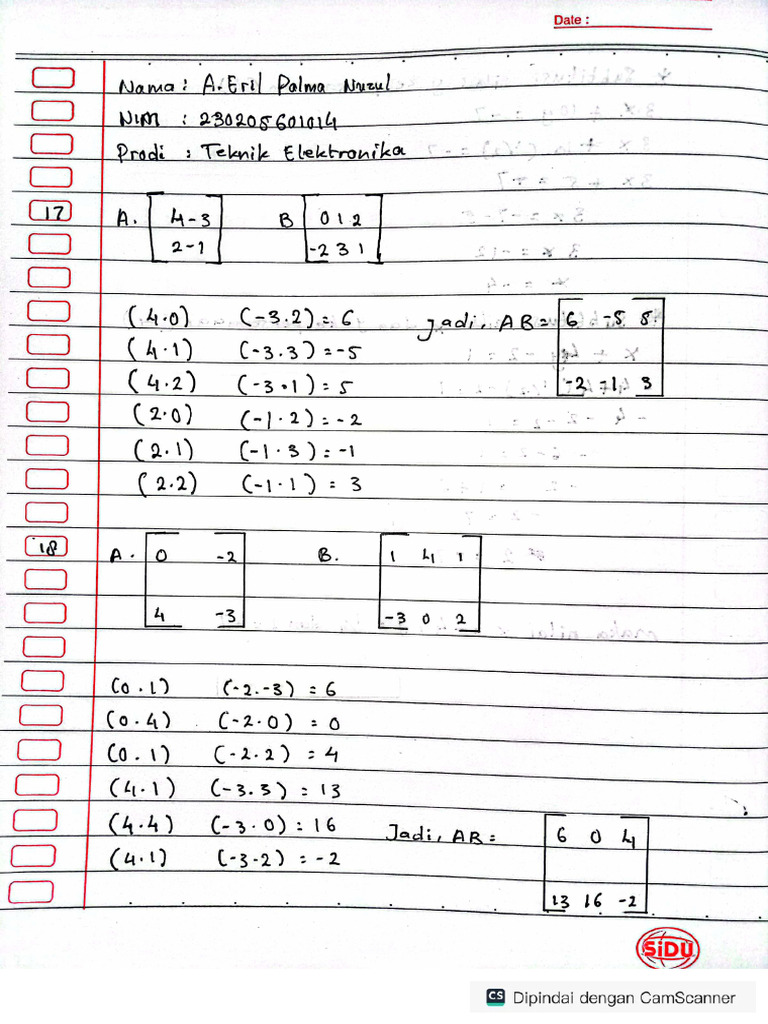 Date :
Nama : A. Eril Palma Nuzul
NIM : 230205601014
Prodi : Teknik Elektronika
17 A. 4 -3 B 0 1 2
2 -1 -2 3 1
(4.0) (-3.2) = 6 Jadi, AB = 6 -5 5
(4.1) (-3.3) = -5
(4.2) (-3.1) = 5 -2 -1 3
(2.0) (-1.2) = -2
(2.1) (-1.3) = -1
(2.2) (-1.1) = 3
18 A. 0 -2 B. 1 4 1
4 -3 -3 0 2
(0.1) (-2.-3) = 6
(0.4) (-2.0) = 0
(0.1) (-2.2) = 4
(4.1) (-3.3) = 13
(4.4) (-3.0) = 16 Jadi, AB = 6 0 4
(4.1) (-3-2) = -2
13 16 -2
SiDU
CS Dipindai dengan CamScanner